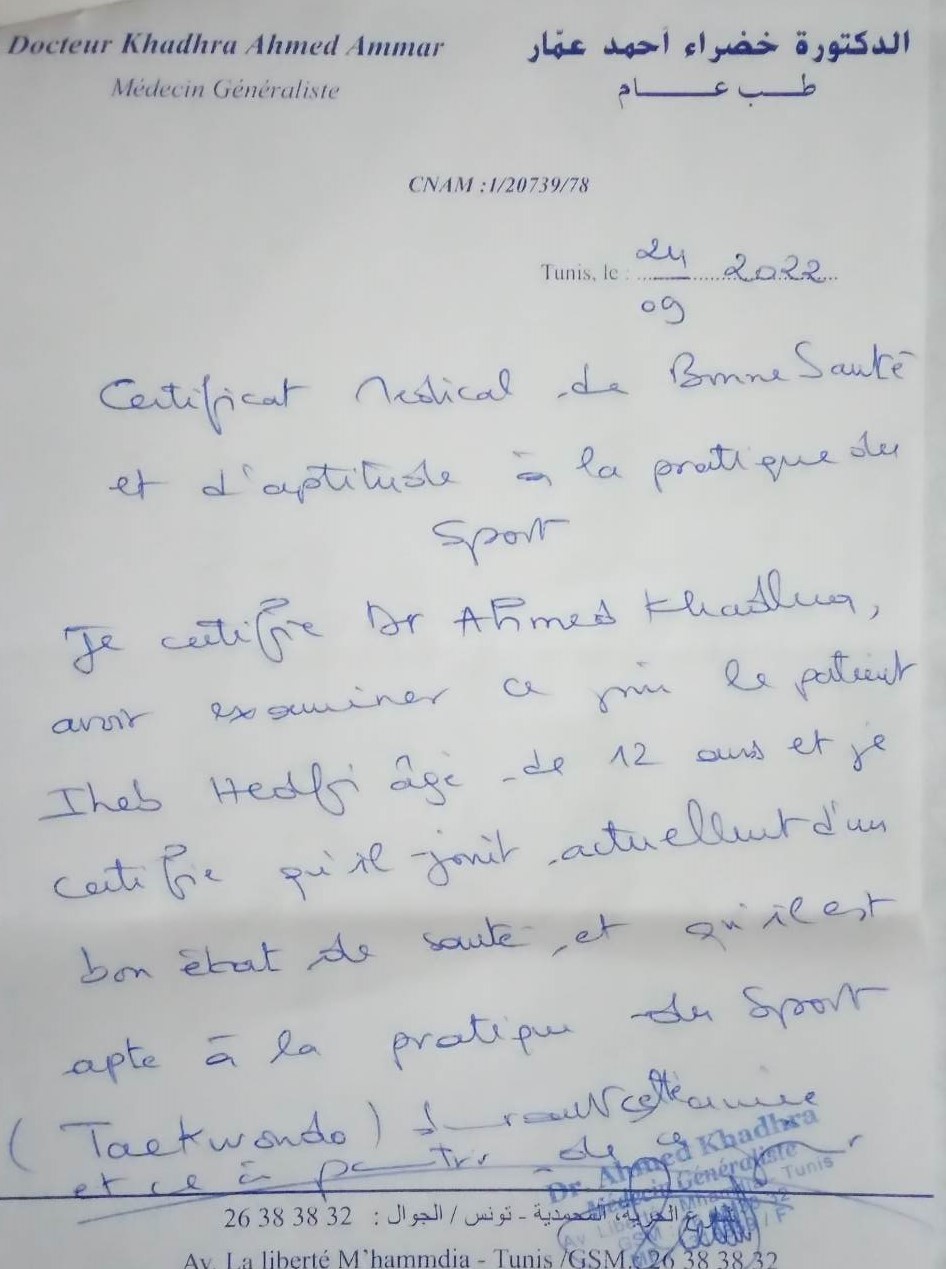 Docteur Khadhra Ahmed Ammar
الدكتورة خضراء أحمد عمّار
Médecin Généraliste
طب عام
CNAM : 1/20739/78
Tunis, le : 24/09 2022
Certificat Medical de Bonne Santé
et d'aptitude à la pratique du
Sport
Je certifie Dr Ahmed Khadhra,
avoir examiner ce jour le patient
Iheb Hedfi âgé de 12 ans et je
certifie qu'il jouit actuellement d'un
bon état de santé et qu'il est
apte à la pratique du Sport
(Taekwondo) cette année
et ce à partir de ce
Dr. Ahmed Khadhra
Médecin Généraliste
شارع الحرية، المحمدية - تونس / الجوال : 26 38 38 32
Av. La liberté M'hammdia - Tunis /GSM : 26 38 38 32